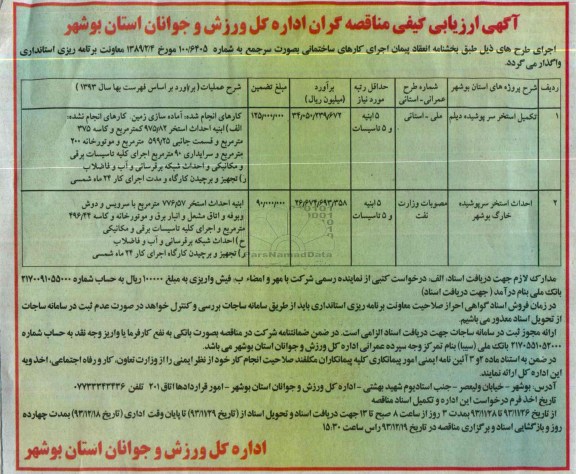 آگهی ارزیابی کیفی مناقصه گران اداره کل ورزش و جوانان استان بوشهر
اجرای طرح های ذیل طبق بخشنامه انعقاد پیمان اجرای کارهای ساختمانی بصورت سرجمع به شماره ۱۰۰/۶۴۰۵ مورخ ۱۳۸۹/۲/۴ معاونت برنامه ریزی استانداری
واگذار می گردد.
ردیف شرح پروژه های استان بوشهر شماره طرح عمرانی-استانی حداقل رتبه مورد نیاز برآورد (میلیون ریال) مبلغ تضمین شرح عملیات (برآورد بر اساس فهرست بها سال ۱۳۹۳)
۱ تکمیل استخر سر پوشیده دیلم ملی - استانی ۵ ابنیه و ۵ تاسیسات ۳۴/۰۵۰/۲۳۹/۶۷۲ ۱۲۵/۰۰۰/۰۰۰
کارهای انجام شده: آماده سازی زمین کارهای انجام نشده:
الف) ابنیه احداث استخر ۹۷۵/۸۲ مترمربع و کاسه ۳۷۵
مترمربع و قسمت جانبی ۵۹۹/۲۵ مترمربع و موتورخانه ۲۰۰
مترمربع و سرایداری ۹۰ مترمربع اجرای کلیه تاسیسات برقی
و مکانیکی و احداث شبکه برقرسانی و آب و فاضلاب
ر) تجهیز و برچیدن کارگاه و مدت اجرای کار ۲۴ ماه شمسی
۲ احداث استخر سرپوشیده خارگ بوشهر مصوبات وزارت نفت ۵ ابنیه و ۵ تاسیسات ۲۶/۶۷۲/۶۹۳/۳۵۸ ۹۰/۰۰۰/۰۰۰
ابنیه احداث استخر ۷۷۶/۵۷ مترمربع با سرویس و دوش
وبوفه و اتاق مشعل و انبار برق و موتورخانه و کاسه ۴۹۶/۴۲
مترمربع و اجرای کلیه تاسیسات برقی و مکانیکی
ح) احداث شبکه برقرسانی و آب و فاضلاب
ر) تجهیز و برچیدن کارگاه اجرای کار ۲۴ ماه شمسی
ParsNamadData
مدارک لازم جهت دریافت اسناد: الف: درخواست کتبی از نماینده رسمی شرکت با مهر و امضاء ب: فیش واریزی به مبلغ ۱۰۰۰۰۰ ریال به حساب شماره ۲۱۷۰۰۹۱۰۵۵۰۰۰
بانک ملی بنام درآمد (جهت دریافت اسناد)
در زمان فروش اسناد گواهی احراز صلاحیت معاونت برنامه ریزی استانداری باید از طریق سامانه ساجات بررسی و کنترل خواهد در صورت عدم ثبت در سامانه ساجات
از تحویل اسناد معذور می باشیم
ارائه مجوز ثبت در سامانه ساجات جهت دریافت اسناد الزامی است. در ضمن ضمانتنامه شرکت در مناقصه بصورت بانکی به نفع کارفرما یا واریز وجه نقد به حساب شماره
۲۱۷۰۵۵۱۰۵۲۰۰۰ بانک ملی (سیبا) بنام تمرکز وجه سپرده عمرانی اداره کل ورزش و جوانان استان بوشهر می باشد.
در ضمن به استناد ماده ۳و۴ آئین نامه ایمنی امور پیمانکاری کلیه پیمانکاران مکلفند صلاحیت انجام کار خود از نظر ایمنی را از وزارت تعاون، کار و رفاه اجتماعی، اخذ و به
این اداره کل ارائه نمایند.
آدرس: بوشهر - خیابان ولیعصر - جنب استادیوم شهید بهشتی - اداره کل ورزش و جوانان استان بوشهر - امور قراردادها اتاق ۲۰۱ تلفن ۰۷۷۳۳۳۴۳۴۳۶
تاریخ اخذ فرم درخواست این اداره و تکمیل اسناد مناقصه
از تاریخ ۹۳/۱۱/۲۶ تا ۹۳/۱۱/۲۸ بمدت ۳ روز از ساعت ۸ صبح تا ۱۳ جهت دریافت اسناد و تحویل اسناد از (تاریخ ۹۳/۱۱/۲۹) تا پایان وقت اداری (تاریخ ۹۳/۱۲/۱۸) بمدت چهارده
روز و بازگشایی اسناد و برگزاری مناقصه در تاریخ ۹۳/۱۲/۱۹ راس ساعت ۱۵:۳۰
اداره کل ورزش و جوانان استان بوشهر